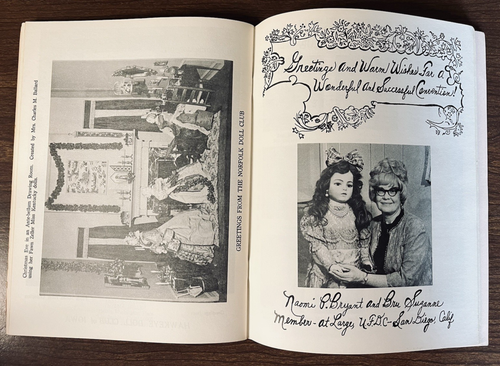 Christmas Eve in an Ante-bellum Drawing Room. Created by Mrs. Charles M. Ballard
using her Fawn Zeller Miss Kentucky dolls.
GREETINGS FROM THE NORFOLK DOLL CLUB
Greetings And Warm Wishes For A
Wonderful And Successful Convention!
Naomi P. Bryant and Bru Suzanne
Member-at Large, UFDC-San Diego, Calif.